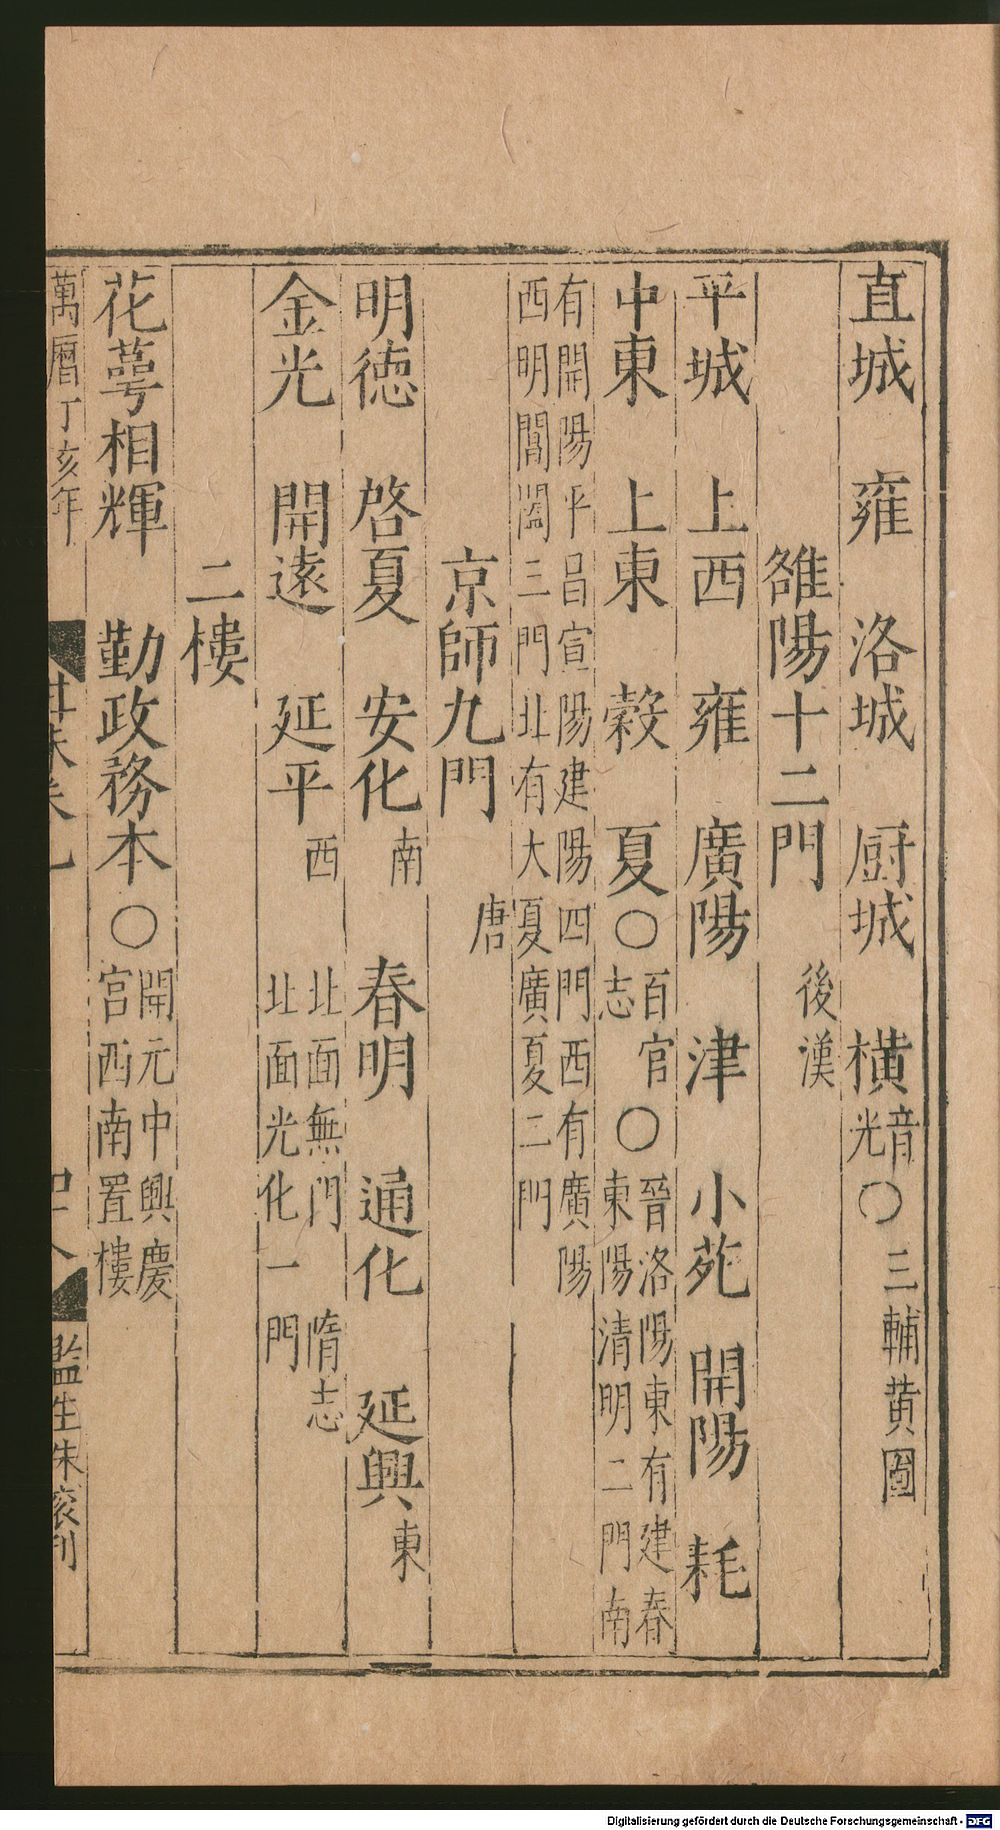 直城　雍　洛城　厨城　橫音光〇三輔黄圖
雒陽十二門後漢
平城　上西　雍　廣陽　津　小苑　開陽　耗
中東　上東　榖　夏〇百官志〇晉洛陽東有建春東陽清明二門南
有開陽平昌宣陽建陽四門西有廣陽西明閶闔三門北有大夏廣夏二門
京師九門唐
明德　啓夏　安化南　春明　通化　延興東
金光　開遠　延平西　北面無門隋志北面光化一門
二樓
花萼相輝　勤政務本〇開元中興慶宫西南置樓
萬曆丁亥年
監生朱衮刊
Digitalisierung gefördert durch die Deutsche Forschungsgemeinschaft - DFG